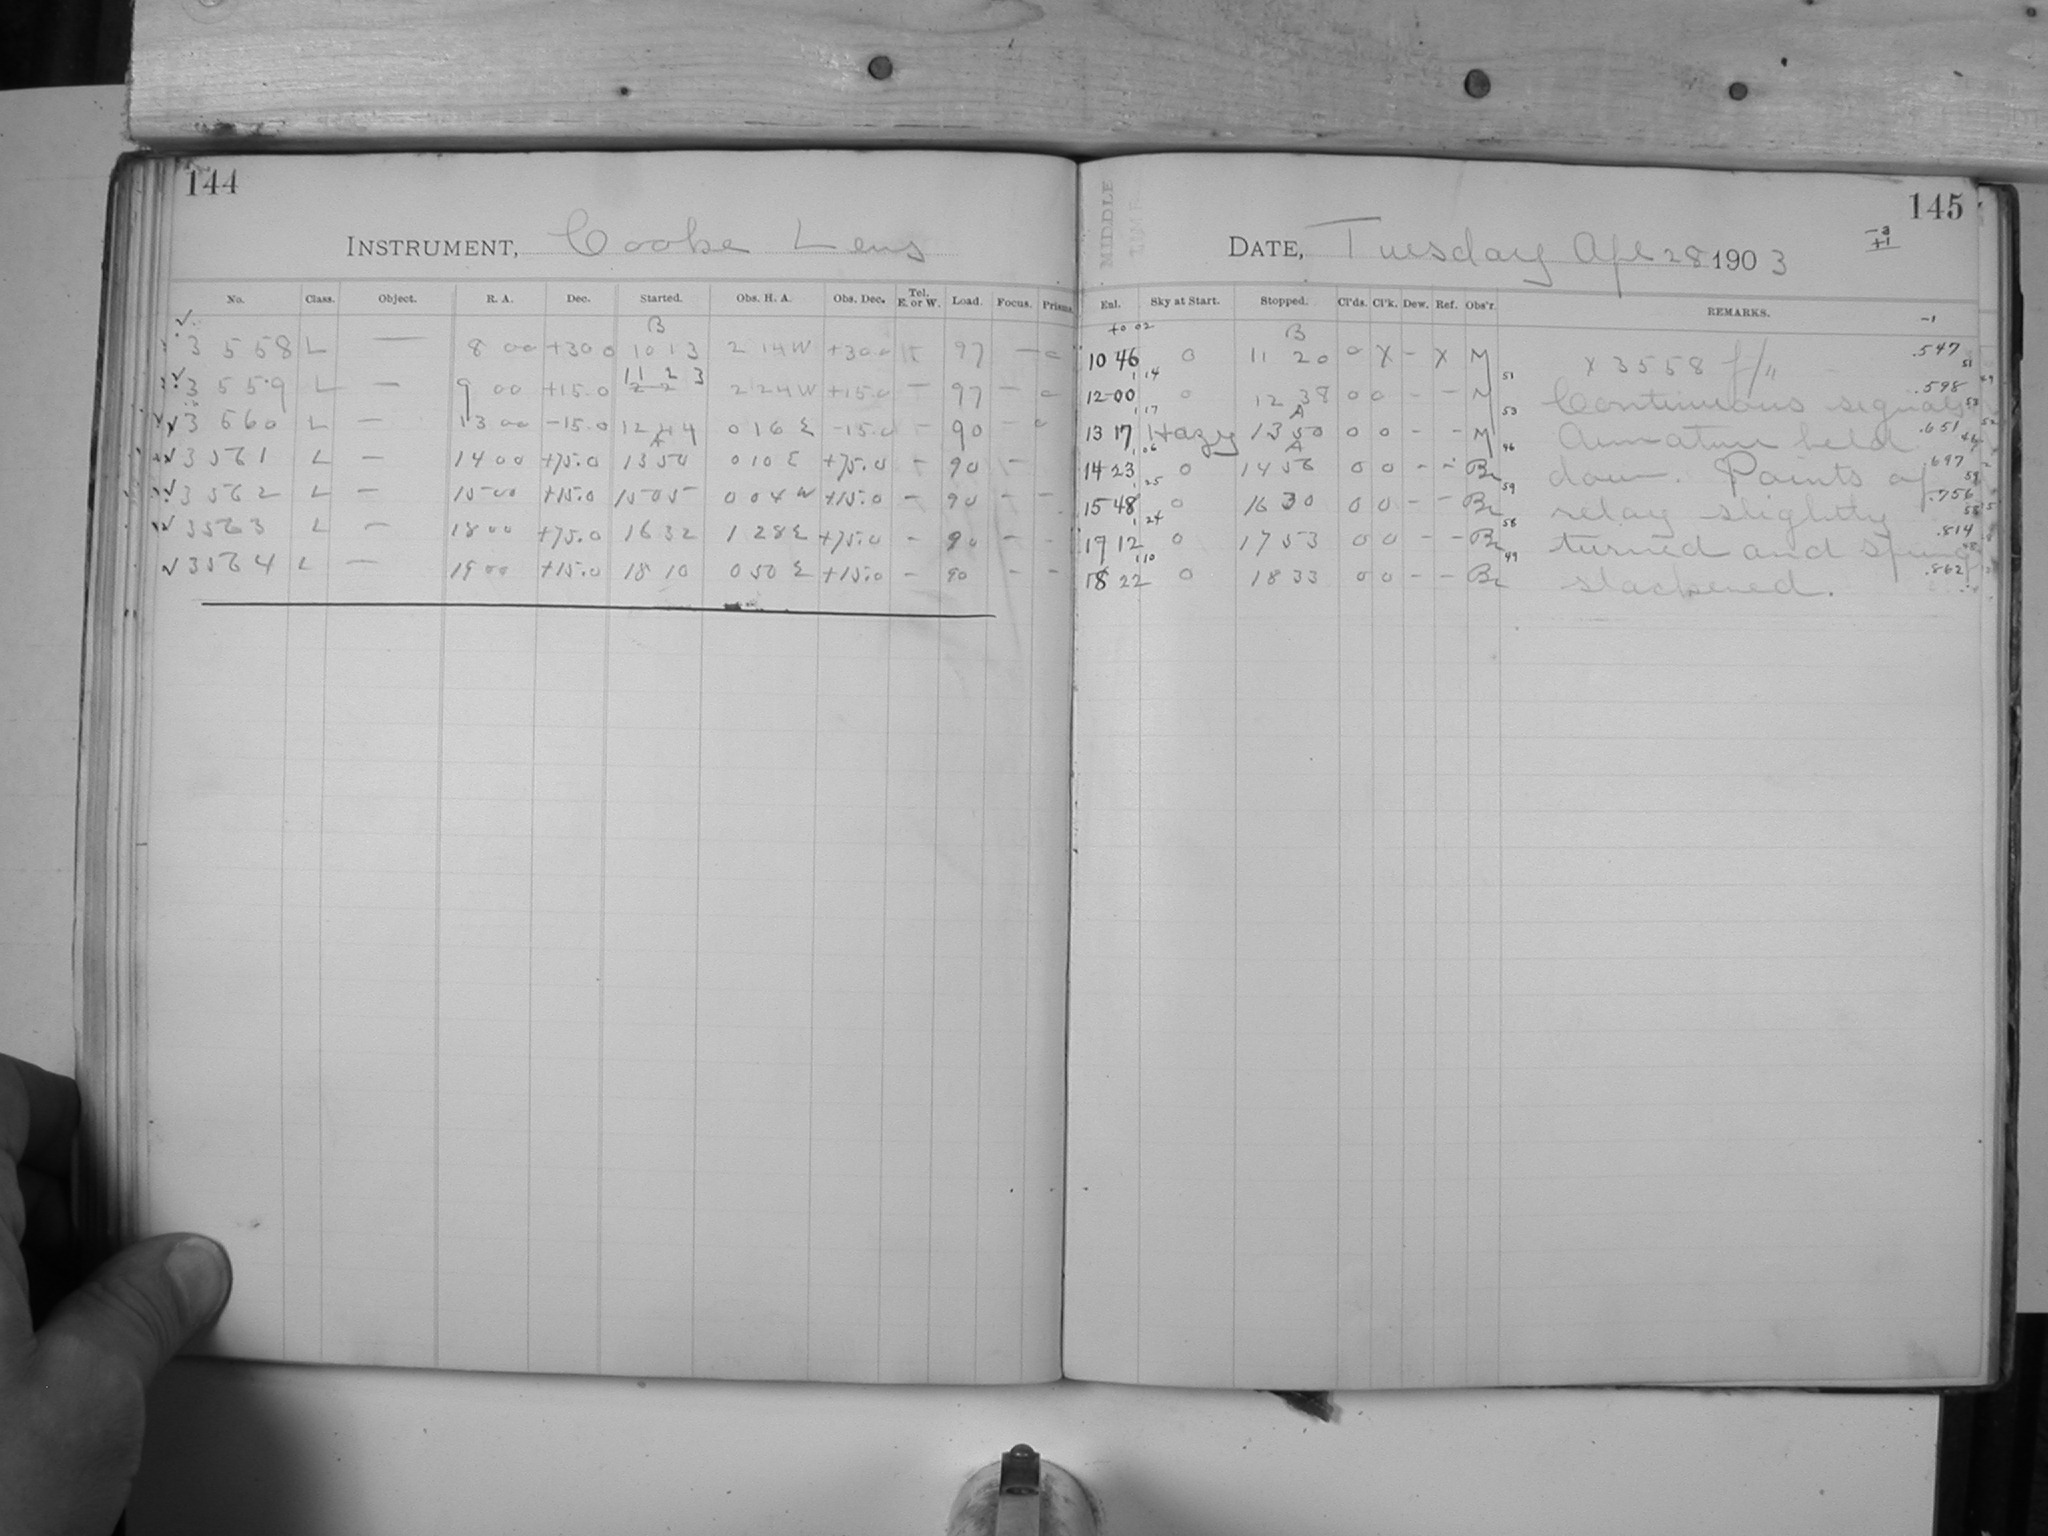 144
INSTRUMENT, Cooke Lens
No. Class. Object. R. A. Dec. Started. Obs. H. A. Obs. Dec. Tel. E. or W. Load. Focus. Prisms.
B
3558 L — 8 00 +30.0 10 13 2 14 W +30.0 97 —
11 23
3559 L — 9 00 +15.0 2 24 W +15.0 — 97 —
3560 L — 13 00 -15.0 12 44 0 16 E -15.0 — 90 —
A
3561 L — 14 00 +75.0 13 50 0 10 E +75.0 — 90 —
3562 L — 15 00 +15.0 15 05 0 04 W +15.0 — 90 — —
3563 L — 18 00 +75.0 16 32 1 28 E +75.0 — 90 — —
3564 L — 19 00 +15.0 18 10 0 50 E +15.0 — 90 — —
MIDDLE
145
DATE, Tuesday Apr 28 1903
-2
+1
Enl. Sky at Start. Stopped. Cl'ds. Cl'k. Dew. Ref. Obs'r. REMARKS.
+0 02 B -1
10 46 0 11 20 0 X — X M X 3558 f/" .547
1 14 51 51
12 00 0 12 38 0 0 — — M Continuous signals .598
1 17 A 53 53
13 17 Hazy 13 50 0 0 — — M Armature held .651
1 06 A 46
14 23 0 14 56 0 0 — — Br down. Points of .697
1 25 59 59
15 48 0 16 30 0 0 — — Br relay slightly .756
1 24 58 58
17 12 0 17 53 0 0 — — Br turned and spring .814
1 10 49
18 22 0 18 33 0 0 — — Br slackened. .862